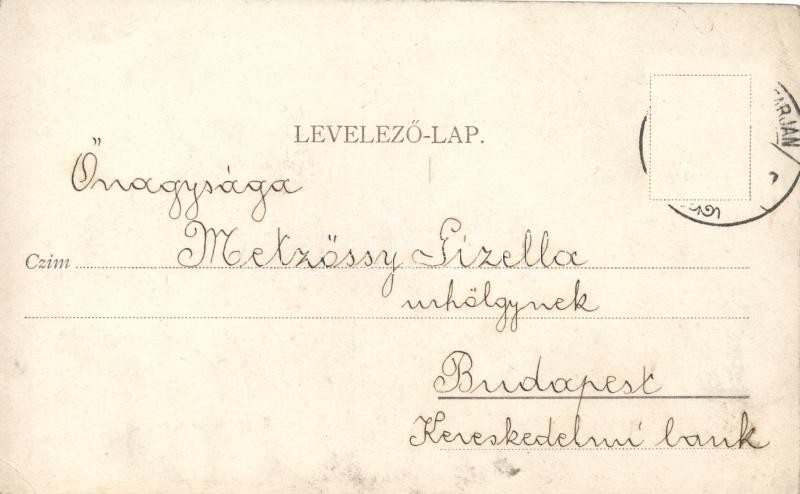 LEVELEZŐ-LAP.
TARJÁN
Őnagysága
Czim Metzőssy Gizella
urhölgynek
Budapest
Kereskedelmi bank